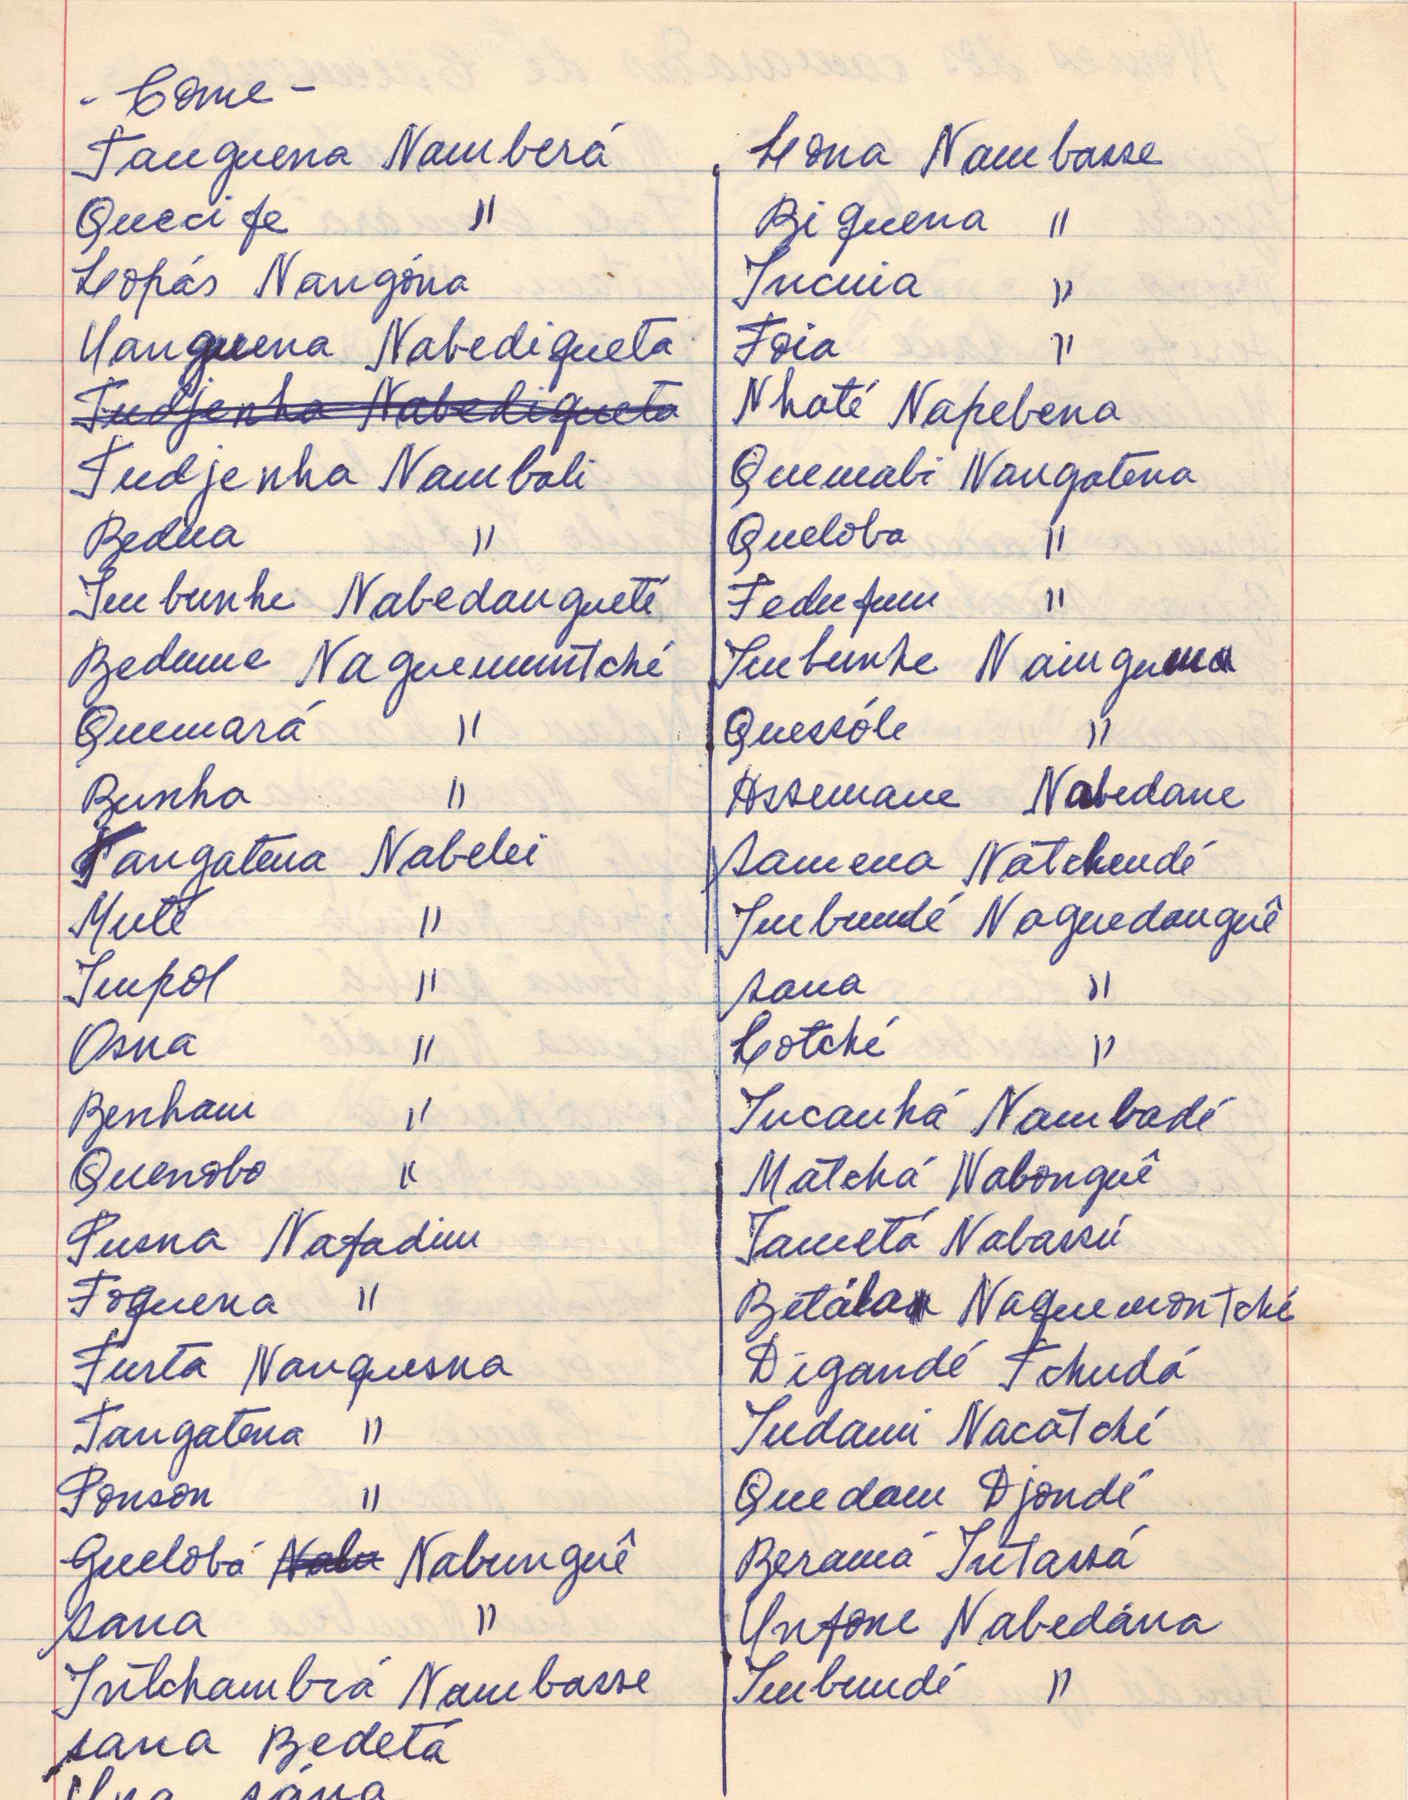 - Come -
Tanguena Namberá
Quecife "
Lopás Nangóna
Uanguena Nabediqueta
Tudjenha Nabediqueta
Tudjenha Namboli
Bedua "
Imbunhe Nabedanguetê
Bedume Naguemuntché
Quemará "
Bunha "
Tangatena Nabelei
Mutê "
Impol "
Osna "
Benham "
Quenobo "
Pusna Nafadim
Foguena "
Furta Nanquesna
Tangatena "
Ponson "
Guelobá Nabunguê
Sana "
Intchambrá Nambasse
Sana Bedetá
Lona Nambasse
Biguena "
Incuia "
Foia "
Nhaté Napebena
Quemabi Nangatena
Queloba "
Fedufum "
Imbunhe Nainguema
Quessóle "
Assemane Nabedane
Samena Natchendé
Imbundé Naguedanguê
Sana "
Lotché "
Incanhá Nambadé
Matchá Nabonguê
Tametá Nabassú
Betála Naguemontché
Digandé Tchudá
Indami Nacatché
Quedam Djondé
Beramá Intassá
Unfone Nabedána
Imbundé "